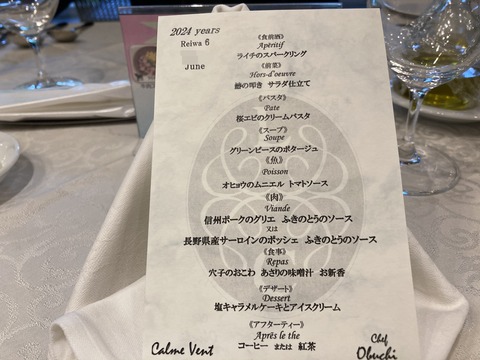 2024 years
Reiwa 6
June
《食前酒》
Apéritif
ライチのスパークリング
《前菜》
Hors-d'oeuvre
鰆の叩き サラダ仕立て
《パスタ》
Pate
桜エビのクリームパスタ
《スープ》
Soupe
グリーンピースのポタージュ
《魚》
Poisson
オヒョウのムニエル トマトソース
《肉》
Viande
信州ポークのグリエ ふきのとうのソース
又は
長野県産サーロインのポッシェ ふきのとうのソース
《食事》
Repas
穴子のおこわ あさりの味噌汁 お新香
《デザート》
Dessert
塩キャラメルケーキとアイスクリーム
《アフターティー》
Après le the
コーヒー または 紅茶
Calme Vent
Chef
Obuchi